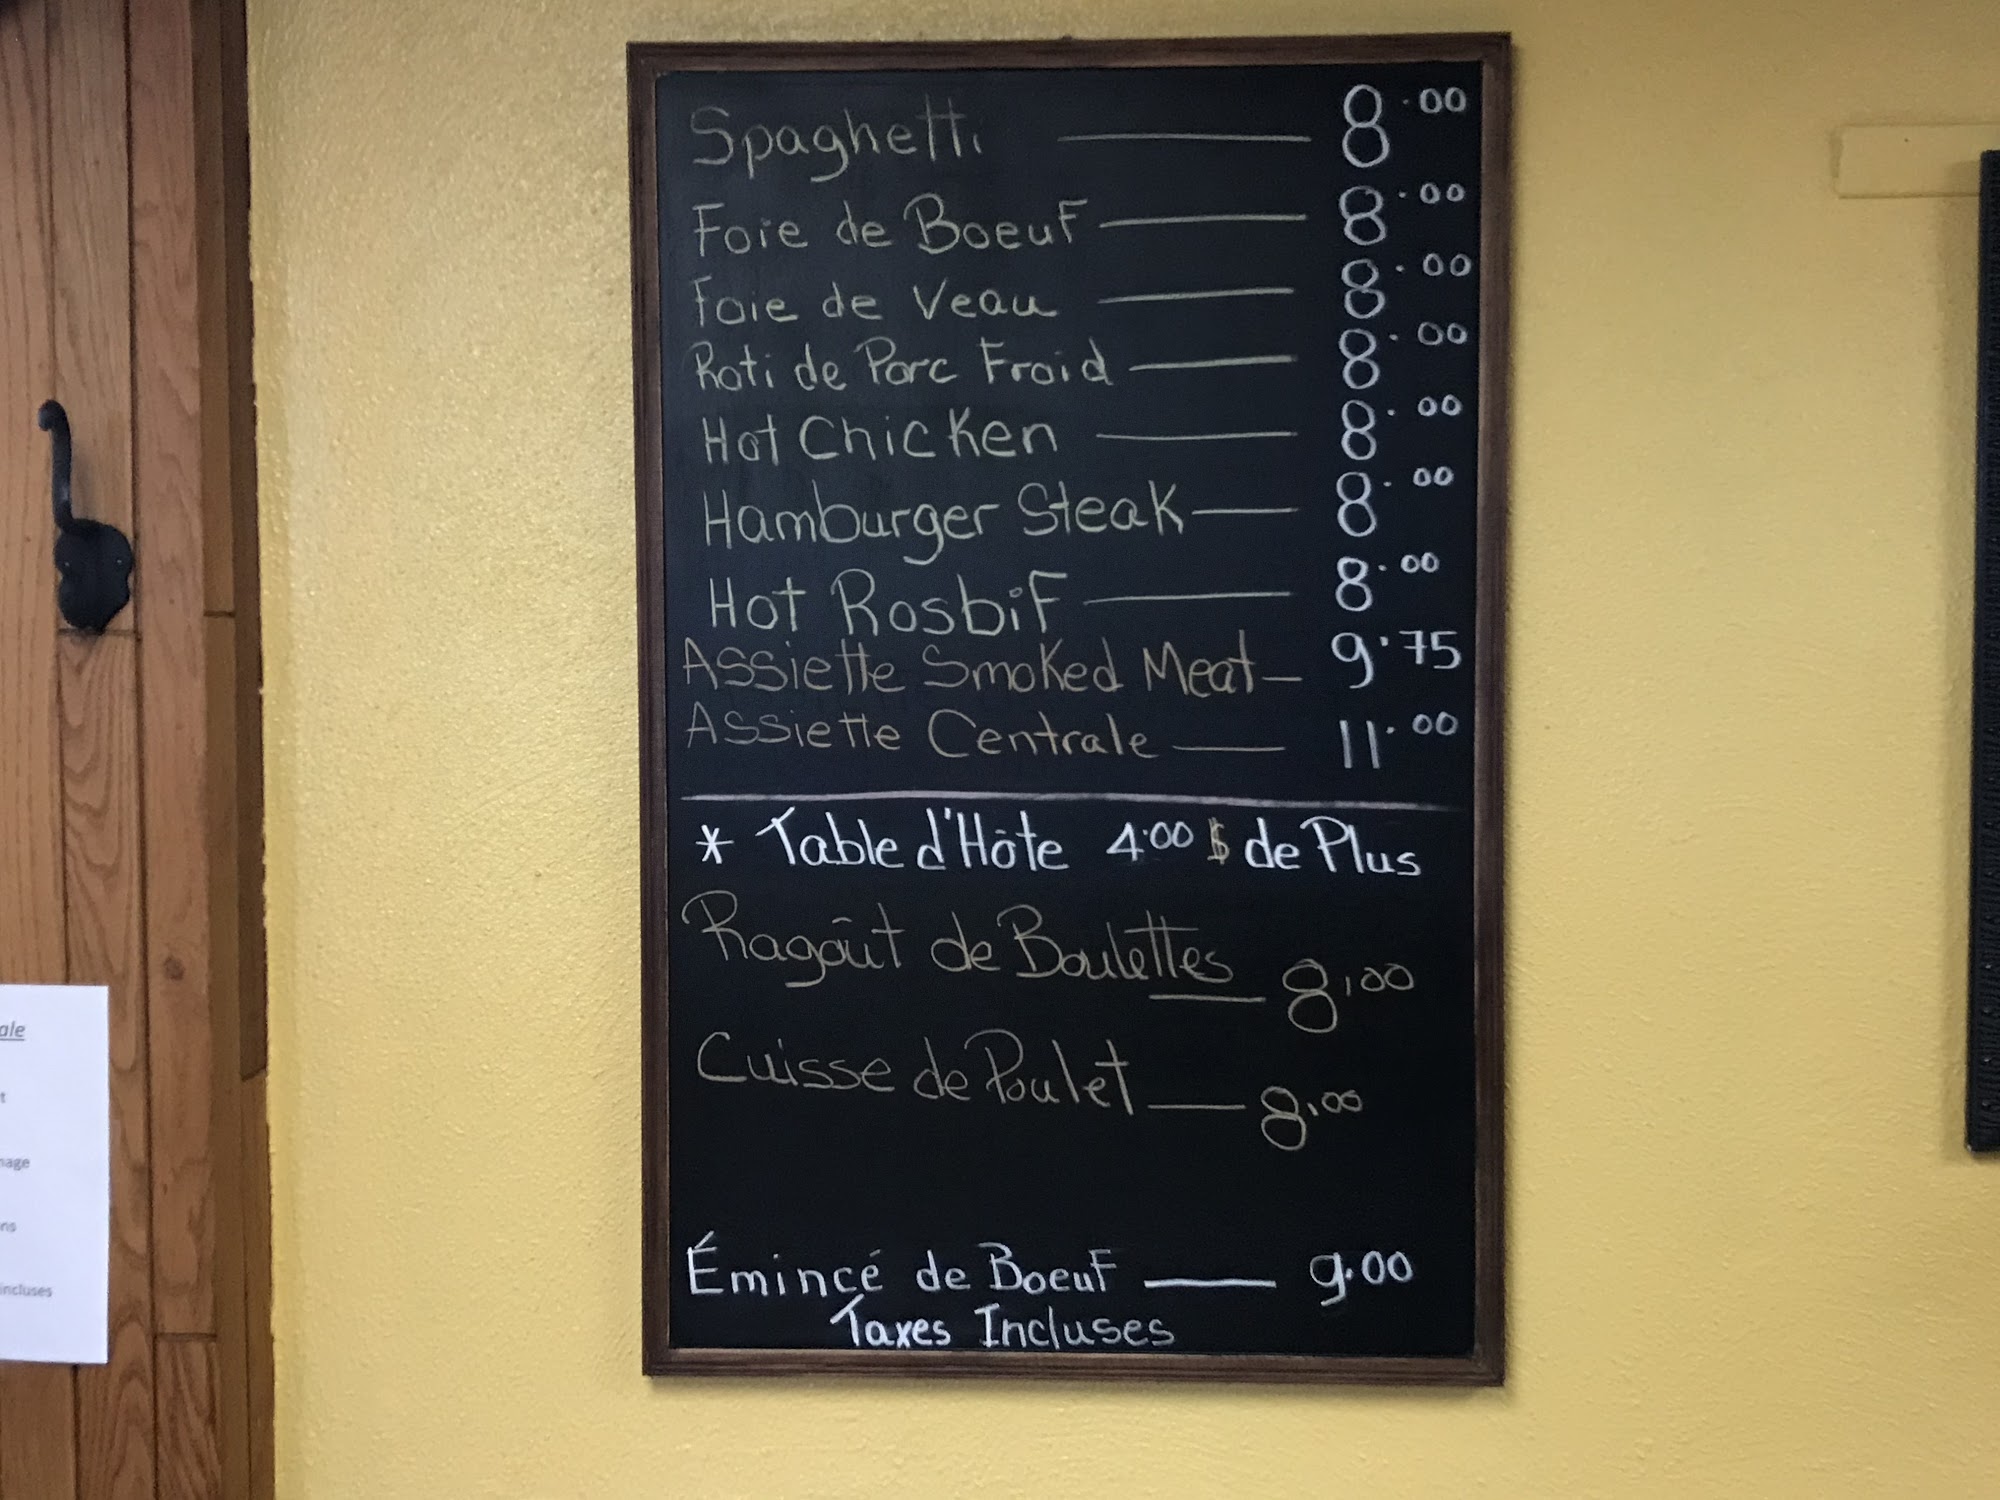 Spaghetti 8.00
Foie de Boeuf 8.00
Foie de Veau 8.00
Roti de Porc Froid 8.00
Hot Chicken 8.00
Hamburger Steak 8.00
Hot Rosbif 8.00
Assiette Smoked Meat 9.75
Assiette Centrale 11.00
* Table d'Hôte 4.00 $ de Plus
Ragoût de Boulettes 8,00
Cuisse de Poulet 8,00
Émincé de Boeuf 9.00
Taxes Incluses
incluses